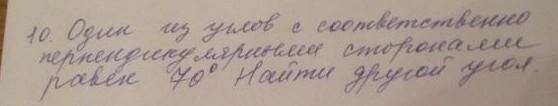 10. Один из углов с соответственно
перпендикулярными сторонами
равен 70° Найти другой угол.